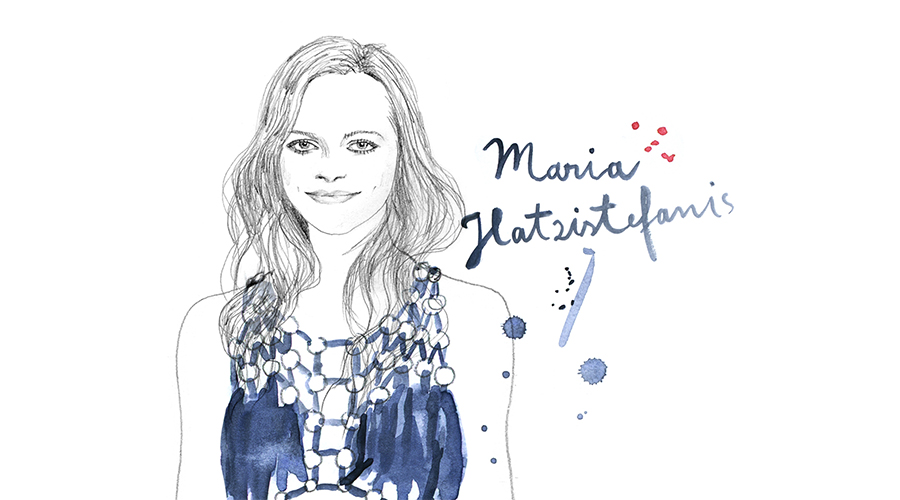 Maria
Hatzistefanis